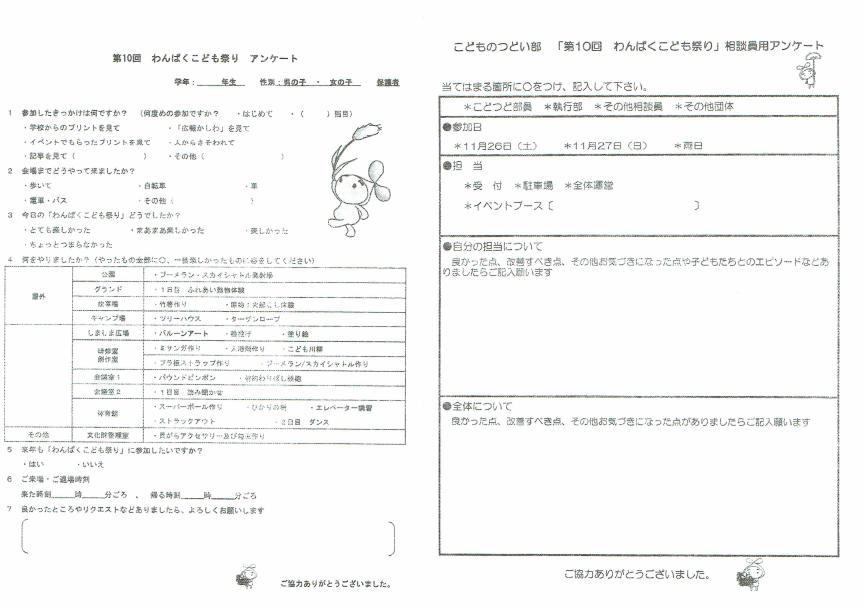 第10回 わんぱくこども祭り アンケート
学年：＿＿＿年生 性別：男の子 ・ 女の子 保護者
1 参加したきっかけは何ですか？ （何度めの参加ですか？ ・はじめて ・（ ）回目）
・学校からのプリントを見て ・「広報かしわ」を見て
・イベントでもらったプリントを見て ・人からさそわれて
・記事を見て（ ） ・その他（ ）
2 会場までどうやって来ましたか？
・歩いて ・自転車 ・車
・電車・バス ・その他（ ）
3 今日の「わんぱくこども祭り」どうでしたか？
・とても楽しかった ・まあまあ楽しかった ・楽しかった
・ちょっとつまらなかった
4 何をやりましたか？（やったもの全部に○、一番楽しかったものに◎をしてください）
屋外
公園 ・ブーメラン・スカイシャトル発射場
グランド ・1日目 ふれあい動物体験
炊事場 ・竹箸作り ・ 体験
キャンプ場 ・ツリーハウス ・ターザンロープ
しましま広場 ・バルーンアート ・輪投げ ・塗り絵
研修室 創作室 ・ミサンガ作り ・ 作り ・こども川柳
・プラ板ストラップ作り ・ブーメラン/スカイシャトル作り
会議室1 ・パウンドピンポン
会議室2 ・1日目 読み聞かせ
体育館 ・スーパーボール作り ・ひかりの ・エレベーター講習
・ストラックアウト ・2日目 ダンス
その他 文化財整理室 ・貝がらアクセサリー及び勾玉作り
5 来年も「わんぱくこども祭り」に参加したいですか？
・はい ・いいえ
6 ご来場・ご退場時刻
来た時刻＿＿時＿＿分ごろ 、 帰る時刻＿＿時＿＿分ごろ
7 良かったところやリクエストなどありましたら、よろしくお願いします
ご協力ありがとうございました。
こどものつどい部 「第10回 わんぱくこども祭り」相談員用アンケート
当てはまる箇所に○をつけ、記入して下さい。
＊ことつど部員 ＊執行部 ＊その他相談員 ＊その他団体
●参加日
＊11月26日（土） ＊11月27日（日） ＊両日
●担 当
＊受 付 ＊駐車場 ＊全体運営
＊イベントブース〔 〕
●自分の担当について
良かった点、改善すべき点、その他お気づきになった点や子どもたちとのエピソードなどあ
りましたらご記入願います
●全体について
良かった点、改善すべき点、その他お気づきになった点がありましたらご記入願います
ご協力ありがとうございました。